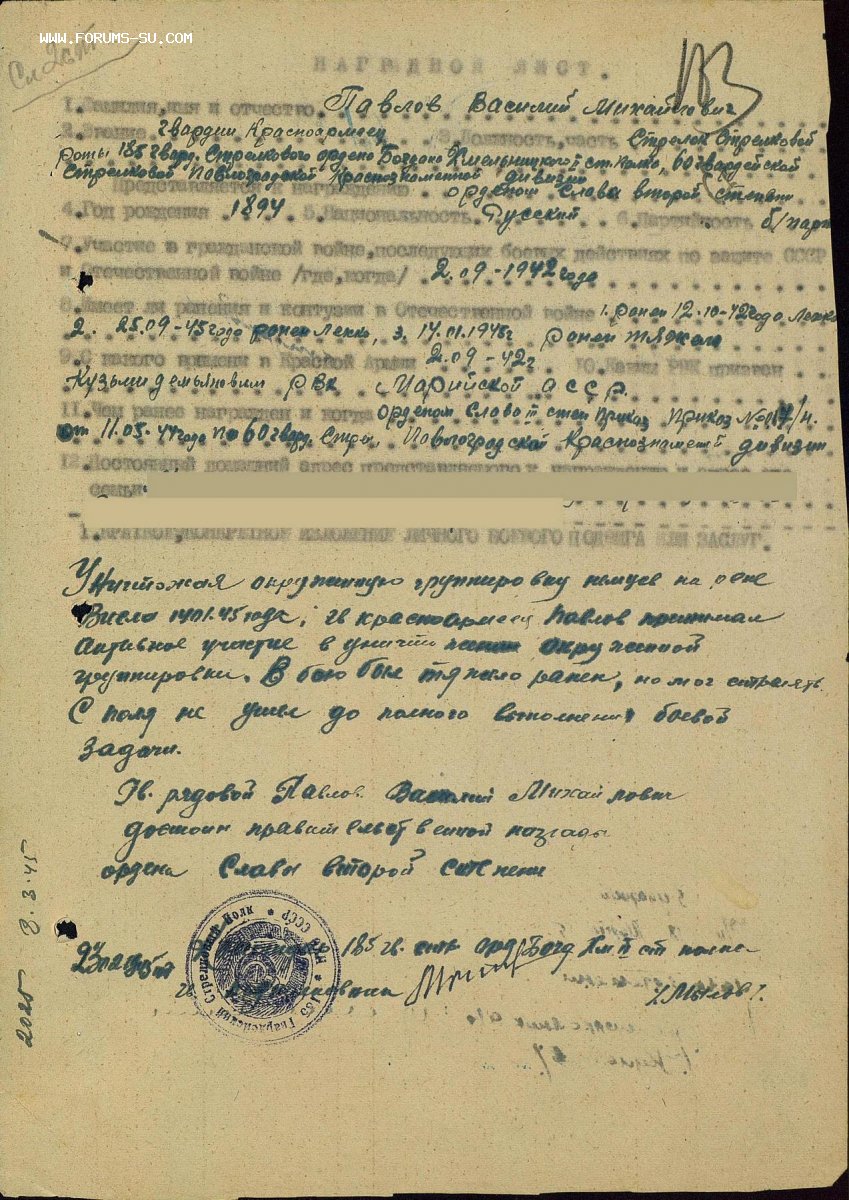 WWW.FORUMS-SU.COM
183
НАГРАДНОЙ ЛИСТ.
1. Фамилия, имя и отчество Павлов Василий Михайлович
2. Звание гвардии Красноармеец 3. Должность, часть Стрелок Стрелковой
роты 185 гвард. Стрелкового ордена Богдана Хмельницкого ст. полка, 60 гвардейской
Стрелковой Павлоградской Краснознаменной дивизии
Представляется к награждению орденом Славы второй степени
4. Год рождения 1894 5. Национальность Русский 6. Партийность б/парт
7. Участие в гражданской войне, последующих боевых действиях по защите СССР
и Отечественной войне /где, когда/ 2.09-1942 года
8. Имеет ли ранения и контузии в Отечественной войне 1. ранен 12.10-42 года легко
2. 25.09-43 года ранен легко, 3. 14.01.1945г ранен тяжело
9. С какого времени в Красной Армии 2.09-42г 10. Каким РВК призван
Кузьмидемьяновим РВК Марийской АССР.
11. Чем ранее награжден и когда Орденом Славы III степ Приказ Приказ № 017/н.
от 11.05-44 года по 60 гвард. Стрел. Павлоградской Краснознаменной дивизии
12. Постоянный домашний адрес представляемого к награждению и адрес его
семьи
1. КРАТКОЕ, КОНКРЕТНОЕ ИЗЛОЖЕНИЕ ЛИЧНОГО БОЕВОГО ПОДВИГА ИЛИ ЗАСЛУГ.
Уничтожая окруженную группировку немцев на реке
Висла 14.01.45 года, гв красноармеец Павлов принимал
активное участие в уничтожении окруженной
группировки. В бою был тяжело ранен, но мог стрелять.
С поля не ушел до полного выполнения боевой
задачи.
Гв. рядовой Павлов Василий Михайлович
достоин правительственной награды
ордена Славы второй степени
185 гв. стр. орд. Богд Хм II ст полка
185 Гвардейский Стрелковый полк * НКО СССР *
гв. подполковник
2025 8.3.45